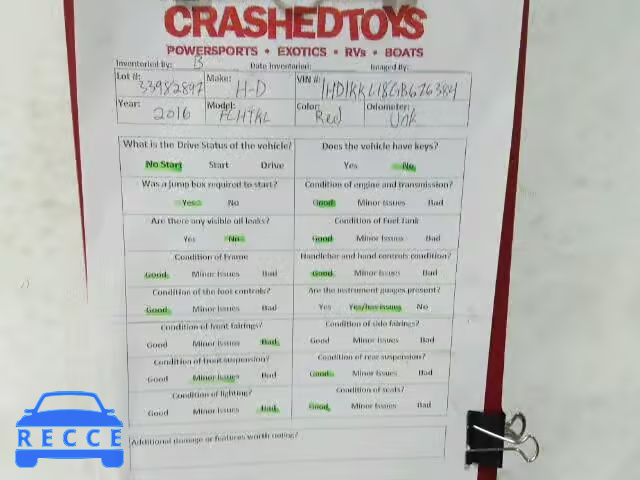 CRASHEDTOYS
POWERSPORTS • EXOTICS • RVs • BOATS
Inventoried By: B Date Inventoried: Imaged By:
Lot #: 33982897 Make: H-D VIN #: 1HD1KKL18GB676384
Year: 2016 Model: FLHTKL Color: Red Odometer: Unk
What is the Drive Status of the vehicle? Does the vehicle have keys?
No Start Start Drive Yes No
Was a jump box required to start? Condition of engine and transmission?
Yes No Good Minor Issues Bad
Are there any visible oil leaks? Condition of Fuel Tank
Yes No Good Minor Issues Bad
Condition of Frame Handlebar and hand controls condition?
Good Minor Issues Bad Good Minor Issues Bad
Condition of the foot controls? Are the instrument guages present?
Good Minor Issues Bad Yes Yes/has issues No
Condition of front fairings? Condition of side fairings?
Good Minor Issues Bad Good Minor Issues Bad
Condition of front suspension? Condition of rear suspension?
Good Minor Issues Bad Good Minor Issues Bad
Condition of lighting? Condition of seats?
Good Minor Issues Bad Good Minor Issues Bad
Additional damage or features worth noting?
RECCE